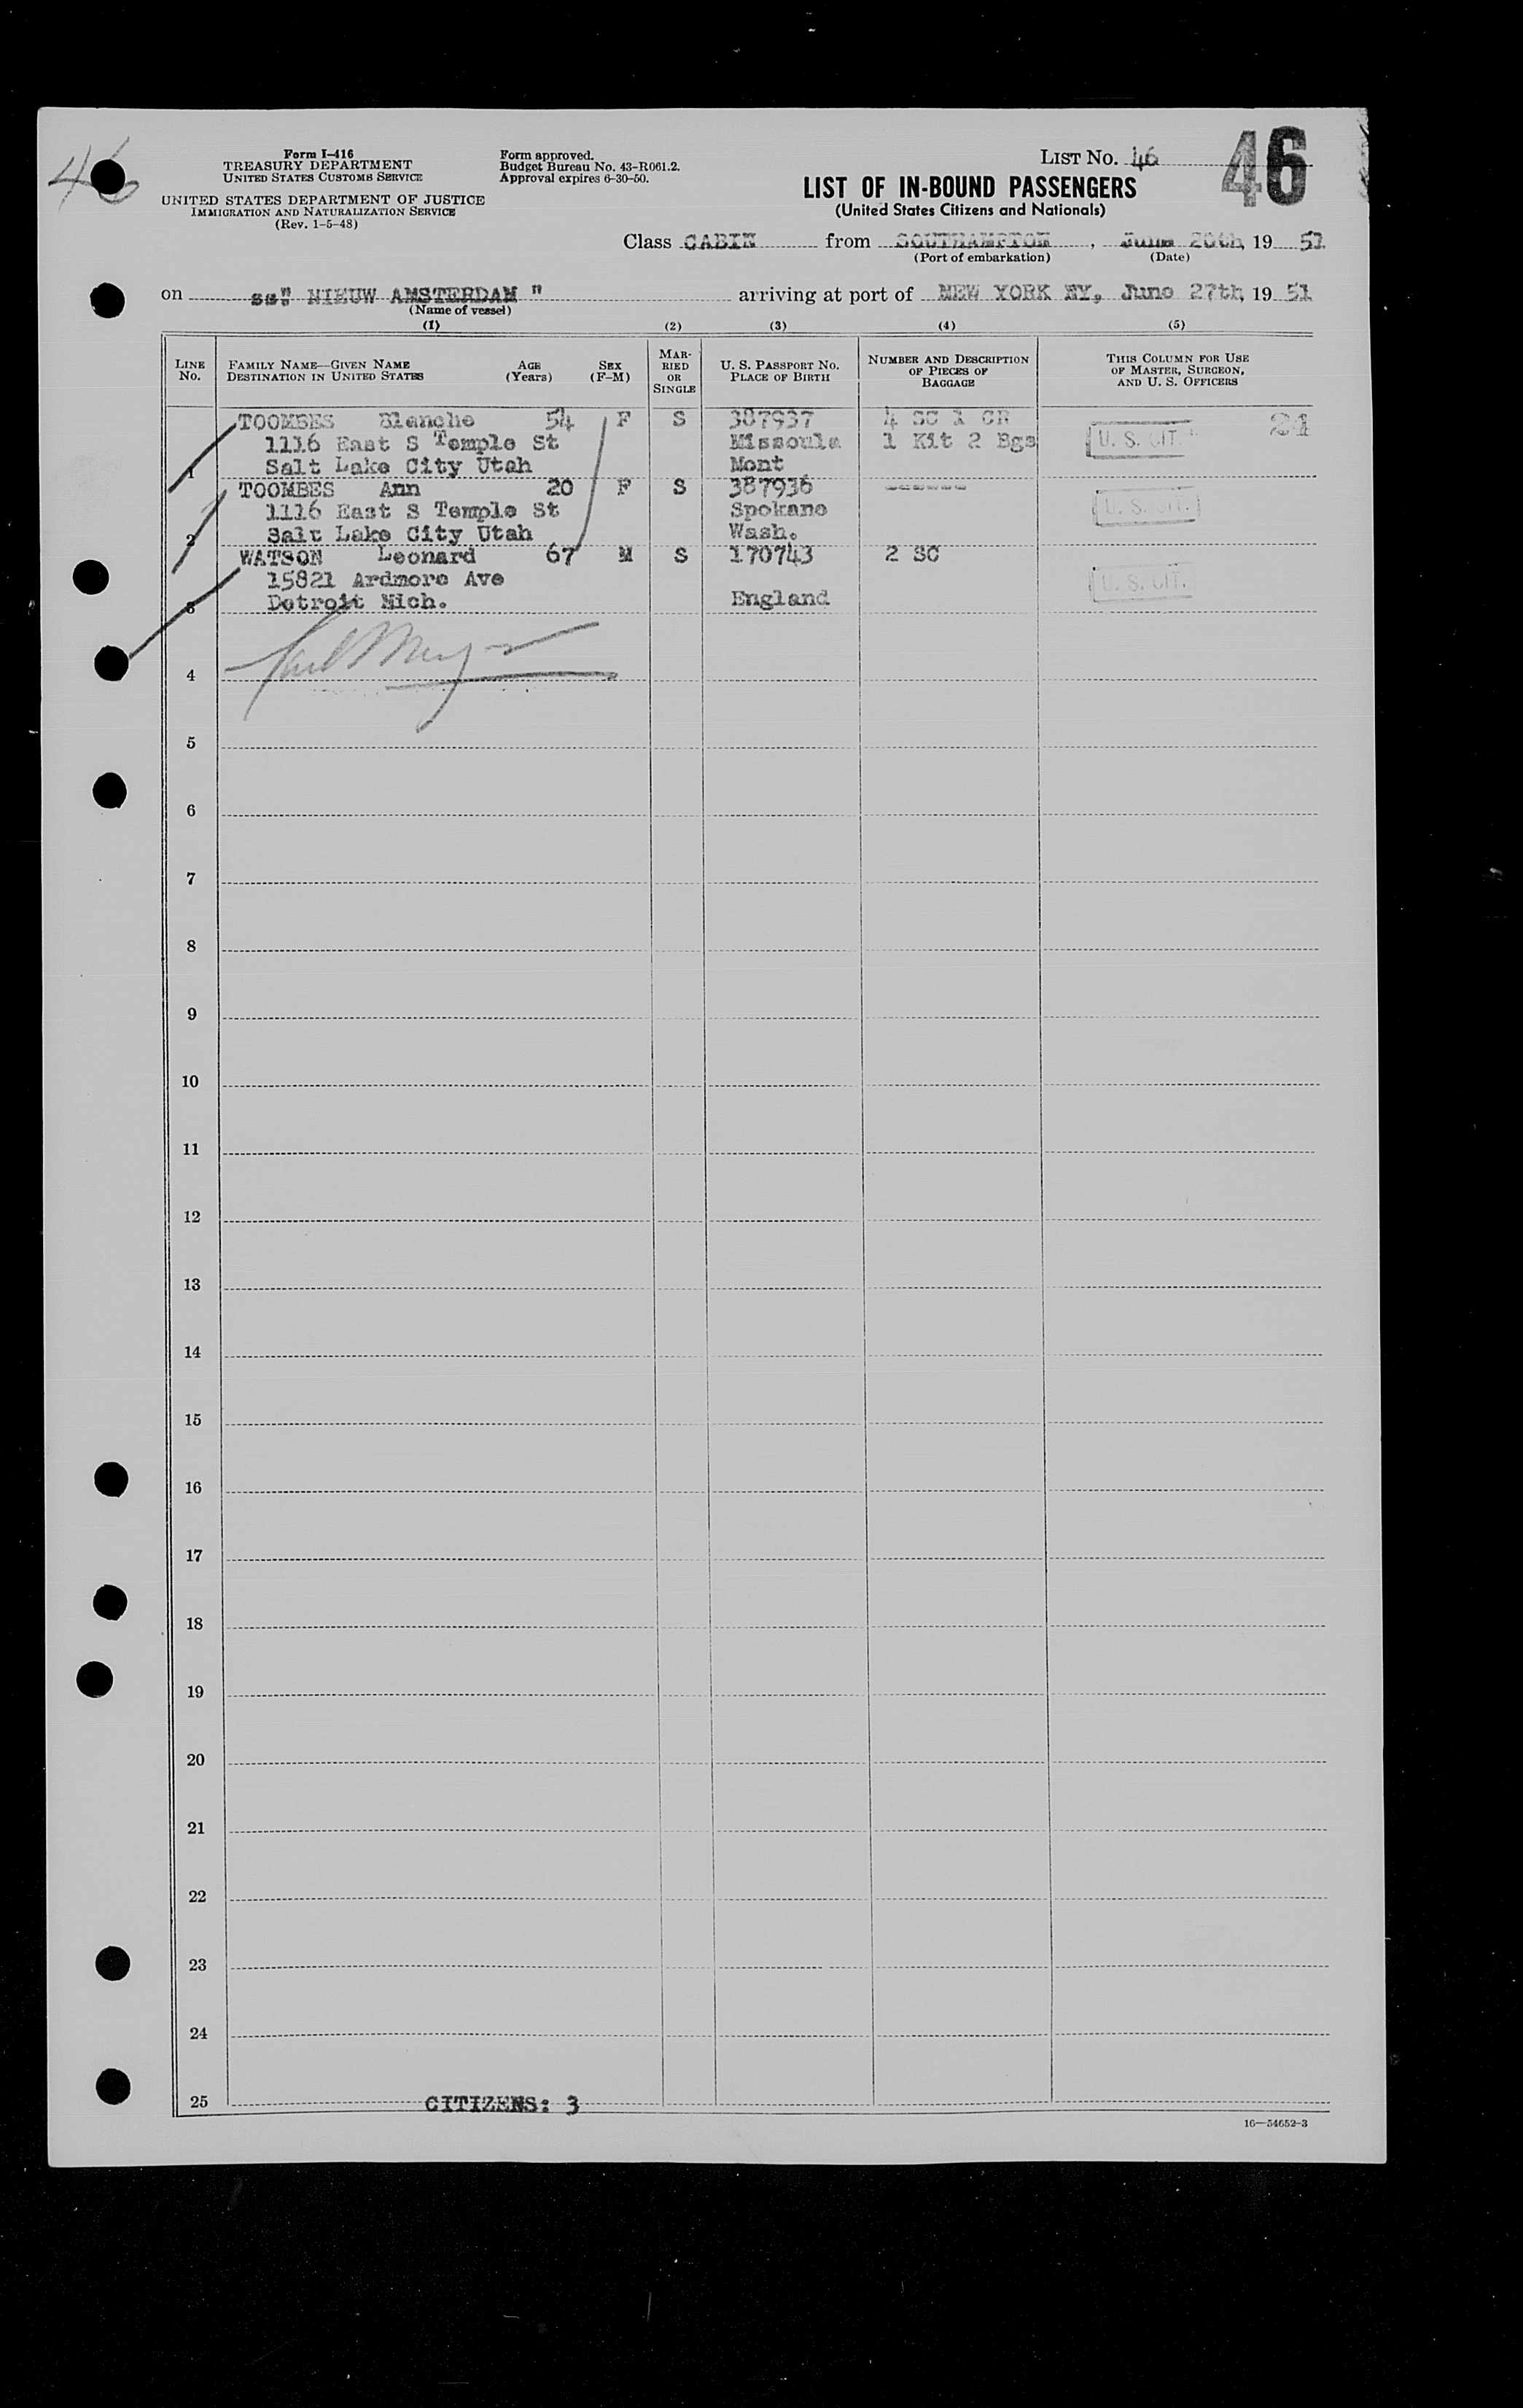 46
Form I-416
TREASURY DEPARTMENT
UNITED STATES CUSTOMS SERVICE
UNITED STATES DEPARTMENT OF JUSTICE
IMMIGRATION AND NATURALIZATION SERVICE
(Rev. 1-5-48)
Form approved.
Budget Bureau No. 43-R061.2.
Approval expires 6-30-50.
LIST No. 46
46
LIST OF IN-BOUND PASSENGERS
(United States Citizens and Nationals)
Class CABIN from SOUTHAMPTON, June 20th, 19 51
(Port of embarkation) (Date)
on ss" NIEUW AMSTERDAM " arriving at port of NEW YORK NY, June 27th, 19 51
(Name of vessel)
(1) (2) (3) (4) (5)
LINE No.
FAMILY NAME—GIVEN NAME
DESTINATION IN UNITED STATES
AGE (Years)
SEX (F-M)
MARRIED OR SINGLE
U. S. PASSPORT No.
PLACE OF BIRTH
NUMBER AND DESCRIPTION
OF PIECES OF
BAGGAGE
THIS COLUMN FOR USE
OF MASTER, SURGEON,
AND U. S. OFFICERS
TOOMBES Blanche 54 F S 387937 4 SC 1 CR U. S. CIT. 21
1116 East S Temple St Missoula 1 Kit 2 Bgs
1 Salt Lake City Utah Mont
TOOMBES Ann 20 F S 387936 ------- U. S. CIT.
1116 East S Temple St Spokane
2 Salt Lake City Utah Wash.
WATSON Leonard 67 M S 170743 2 SC U. S. CIT.
15821 Ardmore Ave
3 Detroit Mich. England
4
5
6
7
8
9
10
11
12
13
14
15
16
17
18
19
20
21
22
23
24
25 CITIZENS: 3
16—54652-3